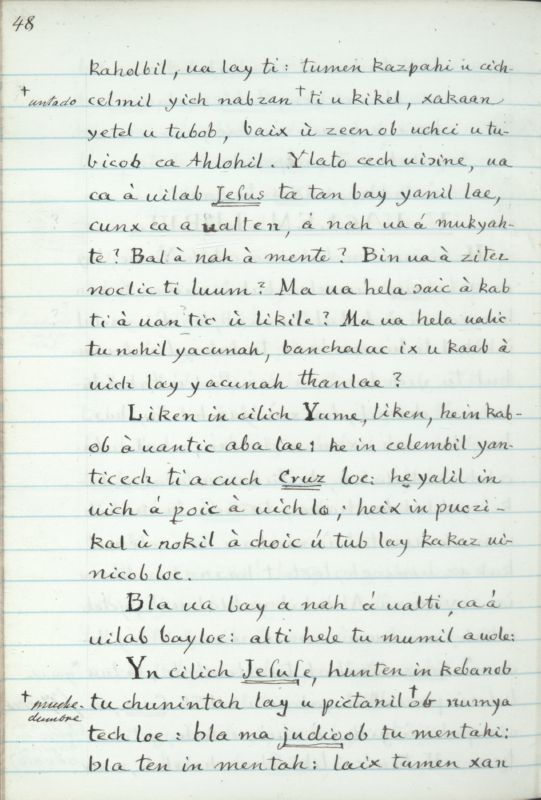 48
kaholbil, ua lay ti: tumen kazpahi u cich-
† untado
celmil yich nabzan † ti u kikel, xakaan
yetel u tubob, baix ù zeen ob uchci u tu-
bicob ca Ahlohil. Ylato cech uiɔine, ua
ca à uilab Jesus ta tan bay yanil lae,
cunx ca a ualten, à nah ua á mukyah-
te? Bal à nah à mente? Bin ua à zitez
noclic ti luum? Ma ua hela ɔaic à kab
ti à uantic ù likile? Ma ua hela ualic
tu nohil yacunah, banchalac ix u kaab à
uich lay yacunah thanlae?
Liken in cilich Yume, liken, he in kab-
ob à uantic aba lae; he in celembil yan-
ticech ti a cuch Cruz loc: he yalil in
uich á poic à uich lo; heix in puczi-
kal ù nokil à choic ú tub lay kakaz ui-
nicob loc.
Bla ua bay a nah á ualti, ca á
uilab bayloe: alti hele tu mumil auole:
Yn cilich Jesuse, hunten in kebanob
† muche-
dumbre
tu chunintah lay u pictanil † ob numya
tech loe: bla ma judioob tu mentahi:
bla ten in mentah: laix tumen xan